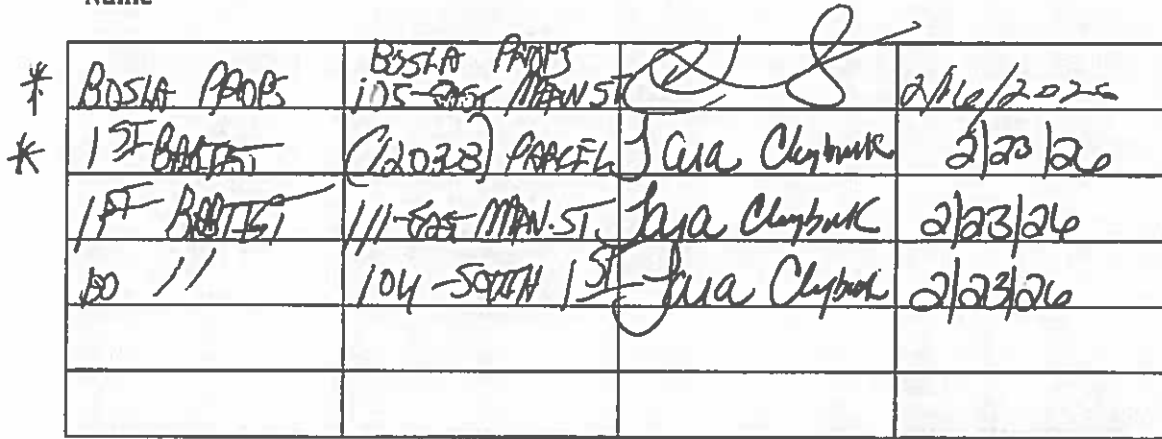 Name
BOSLA PROPS
* BOSLA PROPS 105-EAST MAIN ST 2/16/2026
* 1ST BAPTIST (12038) PARCEL Tara 2/23/26
1ST BAPTIST 111-EAST MAIN ST. Tara 2/23/26
DO " 104-SOUTH 1ST Tara 2/23/26